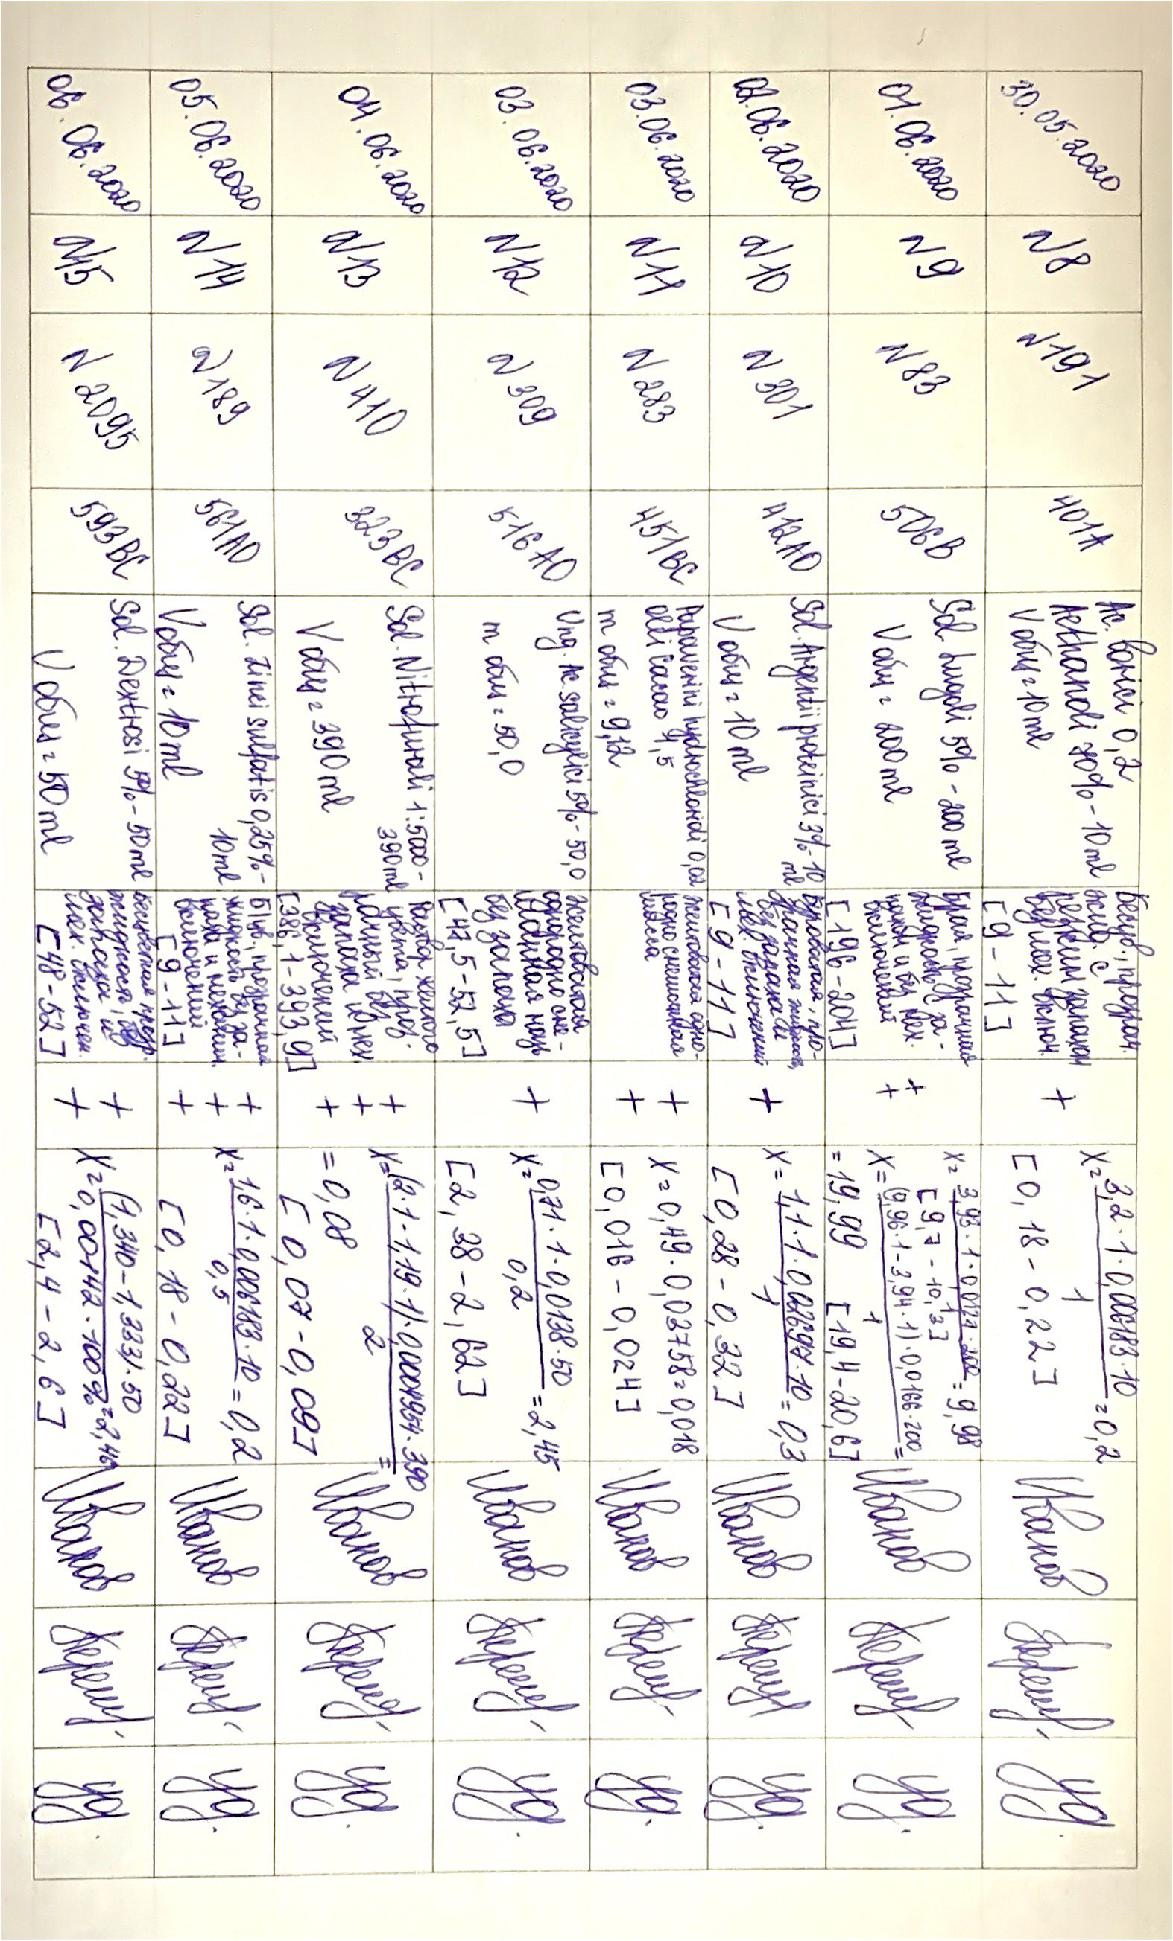 30.05.2020
N8
N191
401А
Ac. Borici 0,2
Aethanoli 70% - 10 ml
V общ = 10 ml
Бесцв., прозрач.
жидк. с
резким запахом
без мех. включ.
[9 - 11]
+
X = 3,2 · 1 · 0,00618З · 10 / 1 = 0,2
[0,18 - 0,22]
Иванов
уд.
01.06.2020
N9
N83
506В
Sol. Lugoli 5% - 200 ml
V общ = 200 ml
Бурая, прозрачная
жидкость с за-
пахом и без мех.
включений
[196 - 204]
+
+
X = 3,93 · 1 · 0,0127 · 200 / 1 = 9,98
[9,7 - 10,3]
X = (9,96 · 1 - 3,94 · 1) · 0,0166 · 200 / 1 =
= 19,99 [19,4 - 20,6]
Иванов
уд.
02.06.2020
N10
N301
412АО
Sol. Argentii proteinici 3% - 10
ml
V общ = 10 ml
без запаха и
мех. включений
[9 - 11]
+
X = 1,1 · 1 · 0,02697 · 10 / 1 = 0,3
[0,28 - 0,32]
Иванов
уд.
03.06.2020
N11
N283
451ВС
Papaverini hydrochloridi 0,02
olei Cacao 4,5
m общ = 9,12
желтоватая одно-
родно смешанная
масса
+
+
X = 0,49 · 0,03758 = 0,018
[0,016 - 0,024]
Иванов
уд.
03.06.2020
N12
N309
516АО
Ung. Ac. salicylici 5% - 50,0
m общ = 50,0
без запаха
[47,5 - 52,5]
+
X = 0,71 · 1 · 0,0138 · 50 / 0,2 = 2,45
[2,38 - 2,62]
Иванов
уд.
04.06.2020
N13
N410
323ВС
Sol. Nitrofurali 1:5000 -
390 ml
V общ = 390 ml
Раствор желтого
цвета, проз-
рачный без
запаха и мех.
включений
[386,1 - 393,9]
+
+
+
X = (2 · 1 - 1,19 · 1) · 0,0004954 · 390 / 2 =
= 0,08
[0,07 - 0,09]
Иванов
уд.
05.06.2020
N14
N189
561АО
Sol. Zinci sulfatis 0,25% -
10 ml
V общ = 10 ml
Бцв., прозрачная
жидкость без за-
паха и механич.
включений
[9 - 11]
+
+
+
X = 1,6 · 1 · 0,006183 · 10 / 0,5 = 0,2
[0,18 - 0,22]
Иванов
уд.
06.06.2020
N15
N2095
593ВС
Sol. Dextrosi 5% - 50 ml
V общ = 50 ml
жидкость, без
запаха и
мех. включен.
[48 - 52]
+
+
X = (1,340 - 1,333) · 50 / 0,00142 · 100% = 2,464
[2,4 - 2,6]
Иванов
уд.